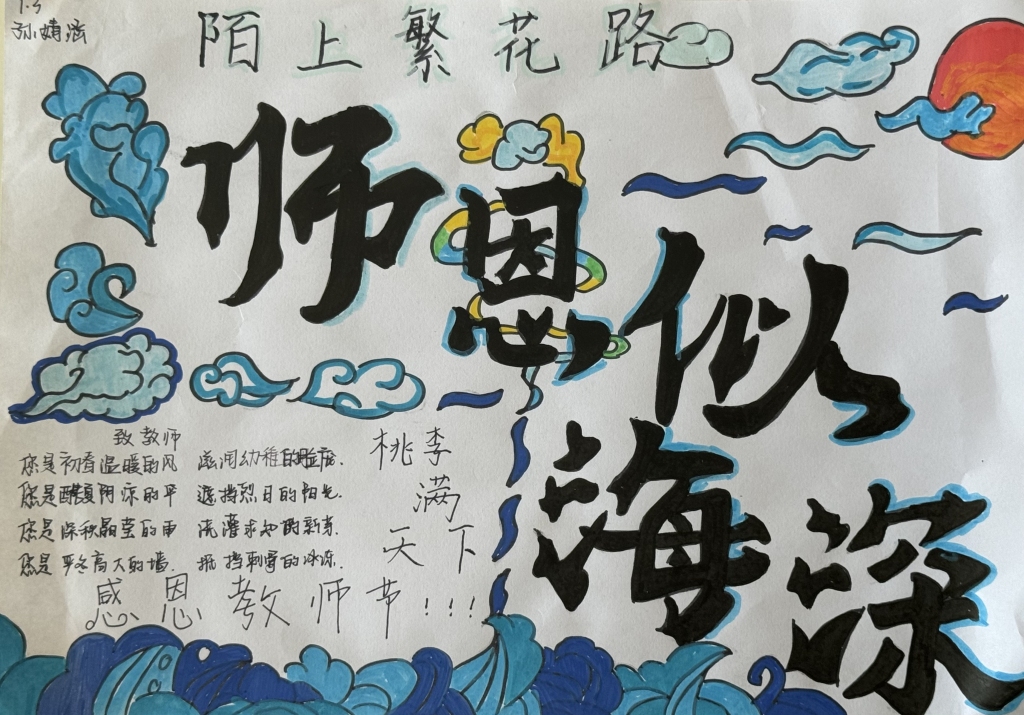 1.3
孙婧涵
陌上繁花路
师恩似海深
致教师
您是初春温暖的风 滋润幼稚的脸庞.
您是酷夏阴凉的伞 遮挡烈日的阳光.
您是深秋晶莹的雨 浇灌求知的新芽.
您是严冬高大的墙. 抵挡刺骨的冰凉.
桃李
满
天下
感恩教师节!!!